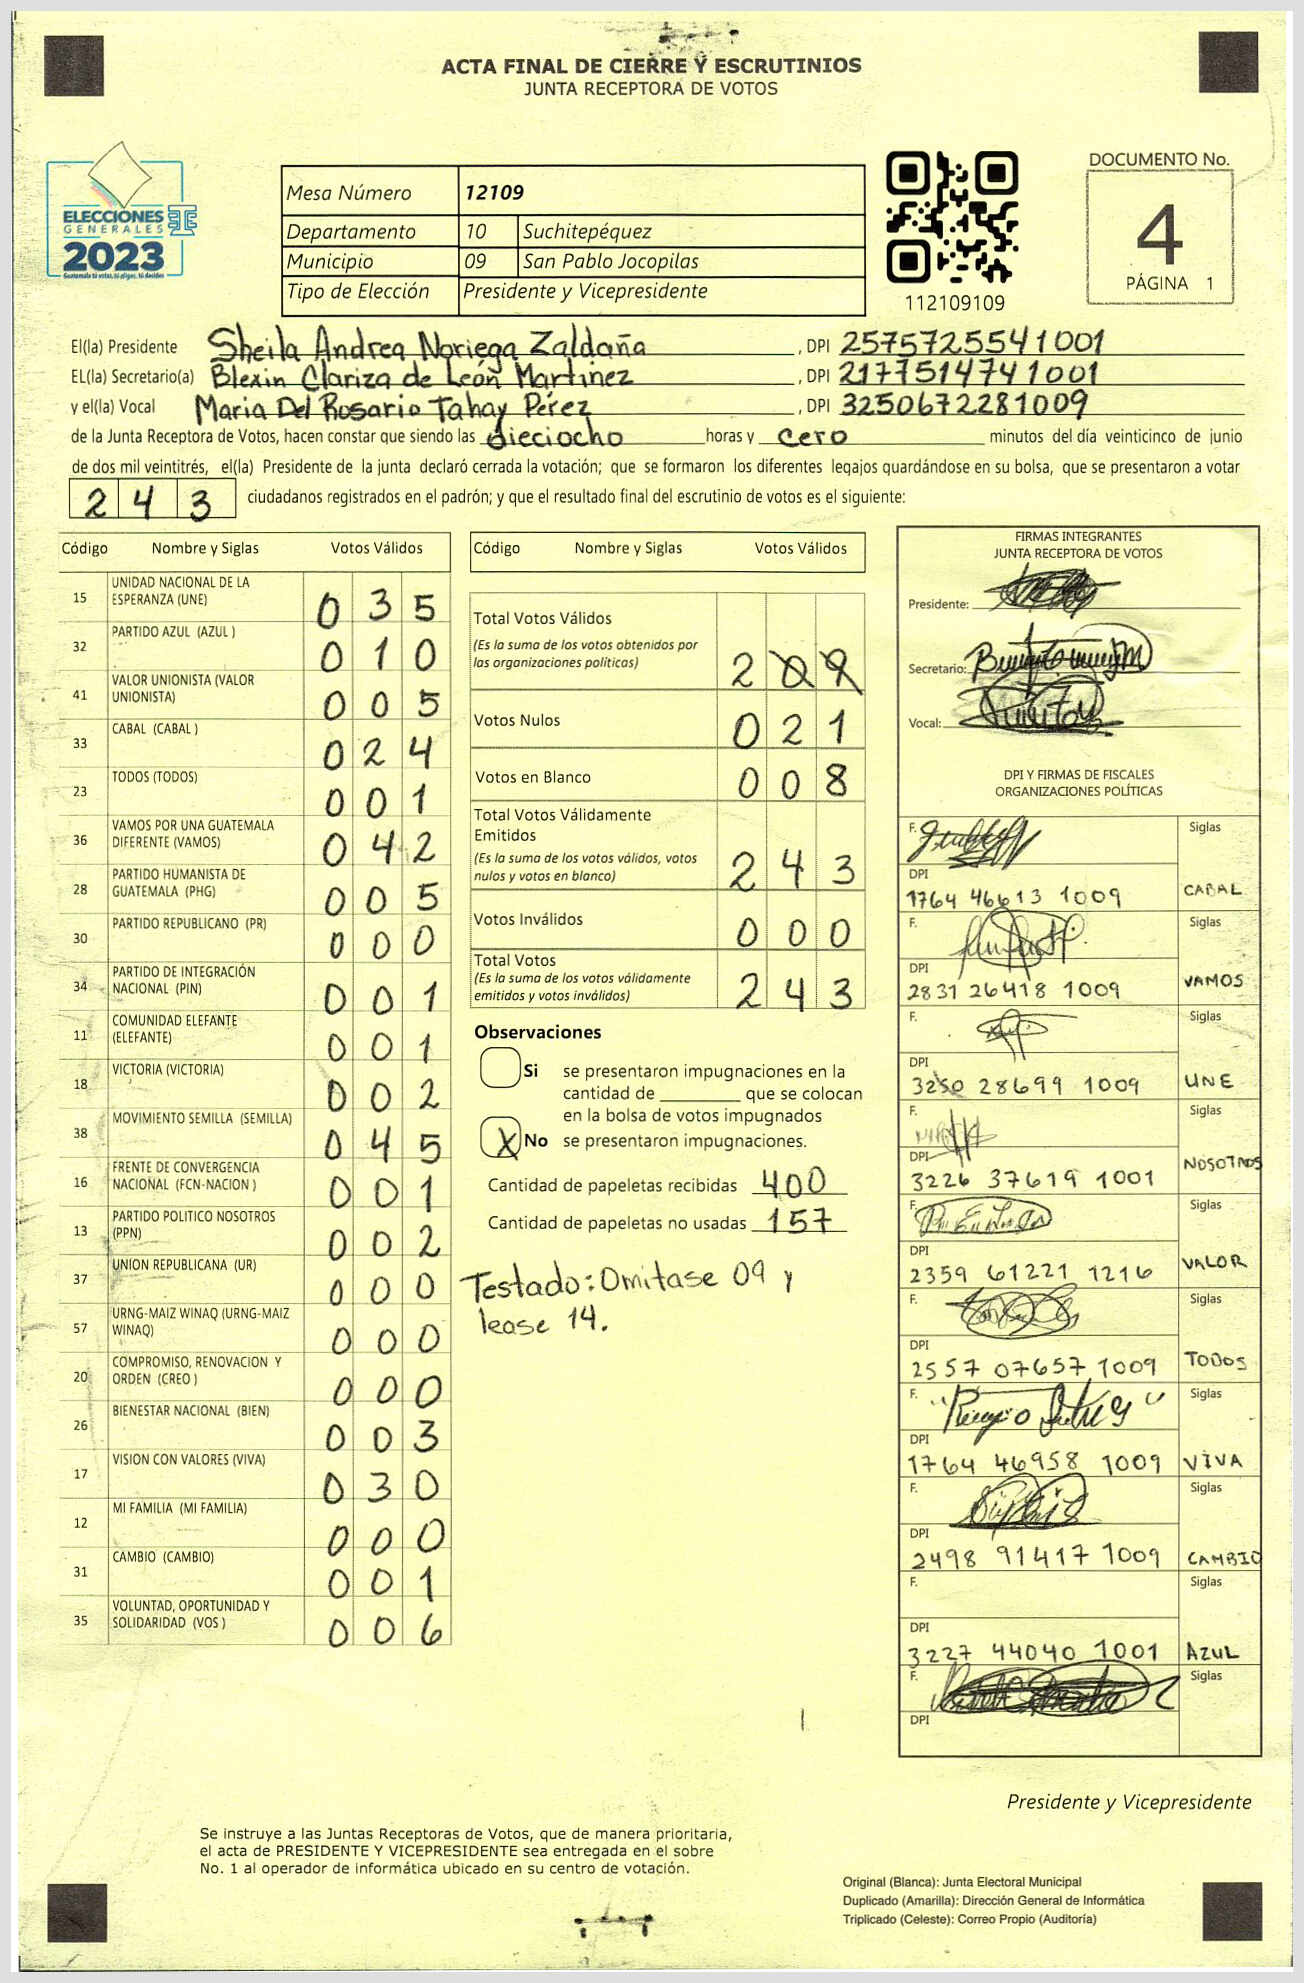 ACTA FINAL DE CIERRE Y ESCRUTINIOS
JUNTA RECEPTORA DE VOTOS
ELECCIONES
GENERALES
2023
Guatemala tú votas, tú eliges, tú decides
Mesa Número 12109
Departamento 10 Suchitepéquez
Municipio 09 San Pablo Jocopilas
Tipo de Elección Presidente y Vicepresidente
112109109
DOCUMENTO No.
4
PÁGINA 1
El(la) Presidente Sheila Andrea Noriega Zaldaña, DPI 2575725541001
EL(la) Secretario(a) Blexin Clariza de León Martinez, DPI 2177514741001
y el(la) Vocal Maria Del Rosario Tahay Pérez, DPI 3250672281009
de la Junta Receptora de Votos, hacen constar que siendo las dieciocho horas y cero minutos del día veinticinco de junio
de dos mil veintitrés, el(la) Presidente de la junta declaró cerrada la votación; que se formaron los diferentes legajos guardándose en su bolsa, que se presentaron a votar
243 ciudadanos registrados en el padrón; y que el resultado final del escrutinio de votos es el siguiente:
Código Nombre y Siglas Votos Válidos
15 UNIDAD NACIONAL DE LA ESPERANZA (UNE) 035
32 PARTIDO AZUL (AZUL ) 010
41 VALOR UNIONISTA (VALOR UNIONISTA) 005
33 CABAL (CABAL ) 024
23 TODOS (TODOS) 001
36 VAMOS POR UNA GUATEMALA DIFERENTE (VAMOS) 042
28 PARTIDO HUMANISTA DE GUATEMALA (PHG) 005
30 PARTIDO REPUBLICANO (PR) 000
34 PARTIDO DE INTEGRACIÓN NACIONAL (PIN) 001
11 COMUNIDAD ELEFANTE (ELEFANTE) 001
18 VICTORIA (VICTORIA) 002
38 MOVIMIENTO SEMILLA (SEMILLA) 045
16 FRENTE DE CONVERGENCIA NACIONAL (FCN-NACION ) 001
13 PARTIDO POLITICO NOSOTROS (PPN) 002
37 UNION REPUBLICANA (UR) 000
57 URNG-MAIZ WINAQ (URNG-MAIZ WINAQ) 000
20 COMPROMISO, RENOVACION Y ORDEN (CREO ) 000
26 BIENESTAR NACIONAL (BIEN) 003
17 VISION CON VALORES (VIVA) 030
12 MI FAMILIA (MI FAMILIA) 000
31 CAMBIO (CAMBIO) 001
35 VOLUNTAD, OPORTUNIDAD Y SOLIDARIDAD (VOS ) 006
Código Nombre y Siglas Votos Válidos
Total Votos Válidos
(Es la suma de los votos obtenidos por
las organizaciones políticas) 209
Votos Nulos 021
Votos en Blanco 008
Total Votos Válidamente
Emitidos
(Es la suma de los votos válidos, votos
nulos y votos en blanco) 243
Votos Inválidos 000
Total Votos
(Es la suma de los votos válidamente
emitidos y votos inválidos) 243
Observaciones
Si se presentaron impugnaciones en la
cantidad de ________ que se colocan
en la bolsa de votos impugnados
X No se presentaron impugnaciones.
Cantidad de papeletas recibidas 400
Cantidad de papeletas no usadas 157
Testado: Omitase 09 y
lease 14.
FIRMAS INTEGRANTES
JUNTA RECEPTORA DE VOTOS
Presidente:
Secretario:
Vocal:
DPI Y FIRMAS DE FISCALES
ORGANIZACIONES POLÍTICAS
F. Siglas
DPI
1764 46613 1009 CABAL
F. Siglas
DPI
2831 26418 1009 VAMOS
F. Siglas
DPI
3250 28699 1009 UNE
F. Siglas
DPI
3226 37619 1001 NOSOTROS
F. Siglas
DPI
2359 61221 1216 VALOR
F. Siglas
DPI
2557 07657 1009 TODOS
F. Siglas
DPI
1764 46958 1009 VIVA
F. Siglas
DPI
2498 91417 1009 CAMBIO
F. Siglas
DPI
3227 44040 1001 AZUL
F. Siglas
DPI
Presidente y Vicepresidente
Se instruye a las Juntas Receptoras de Votos, que de manera prioritaria,
el acta de PRESIDENTE Y VICEPRESIDENTE sea entregada en el sobre
No. 1 al operador de informática ubicado en su centro de votación.
Original (Blanca): Junta Electoral Municipal
Duplicado (Amarilla): Dirección General de Informática
Triplicado (Celeste): Correo Propio (Auditoría)